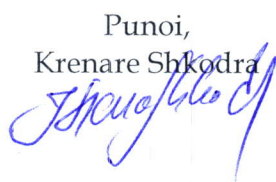 Punoi,
Krenare Shkodra